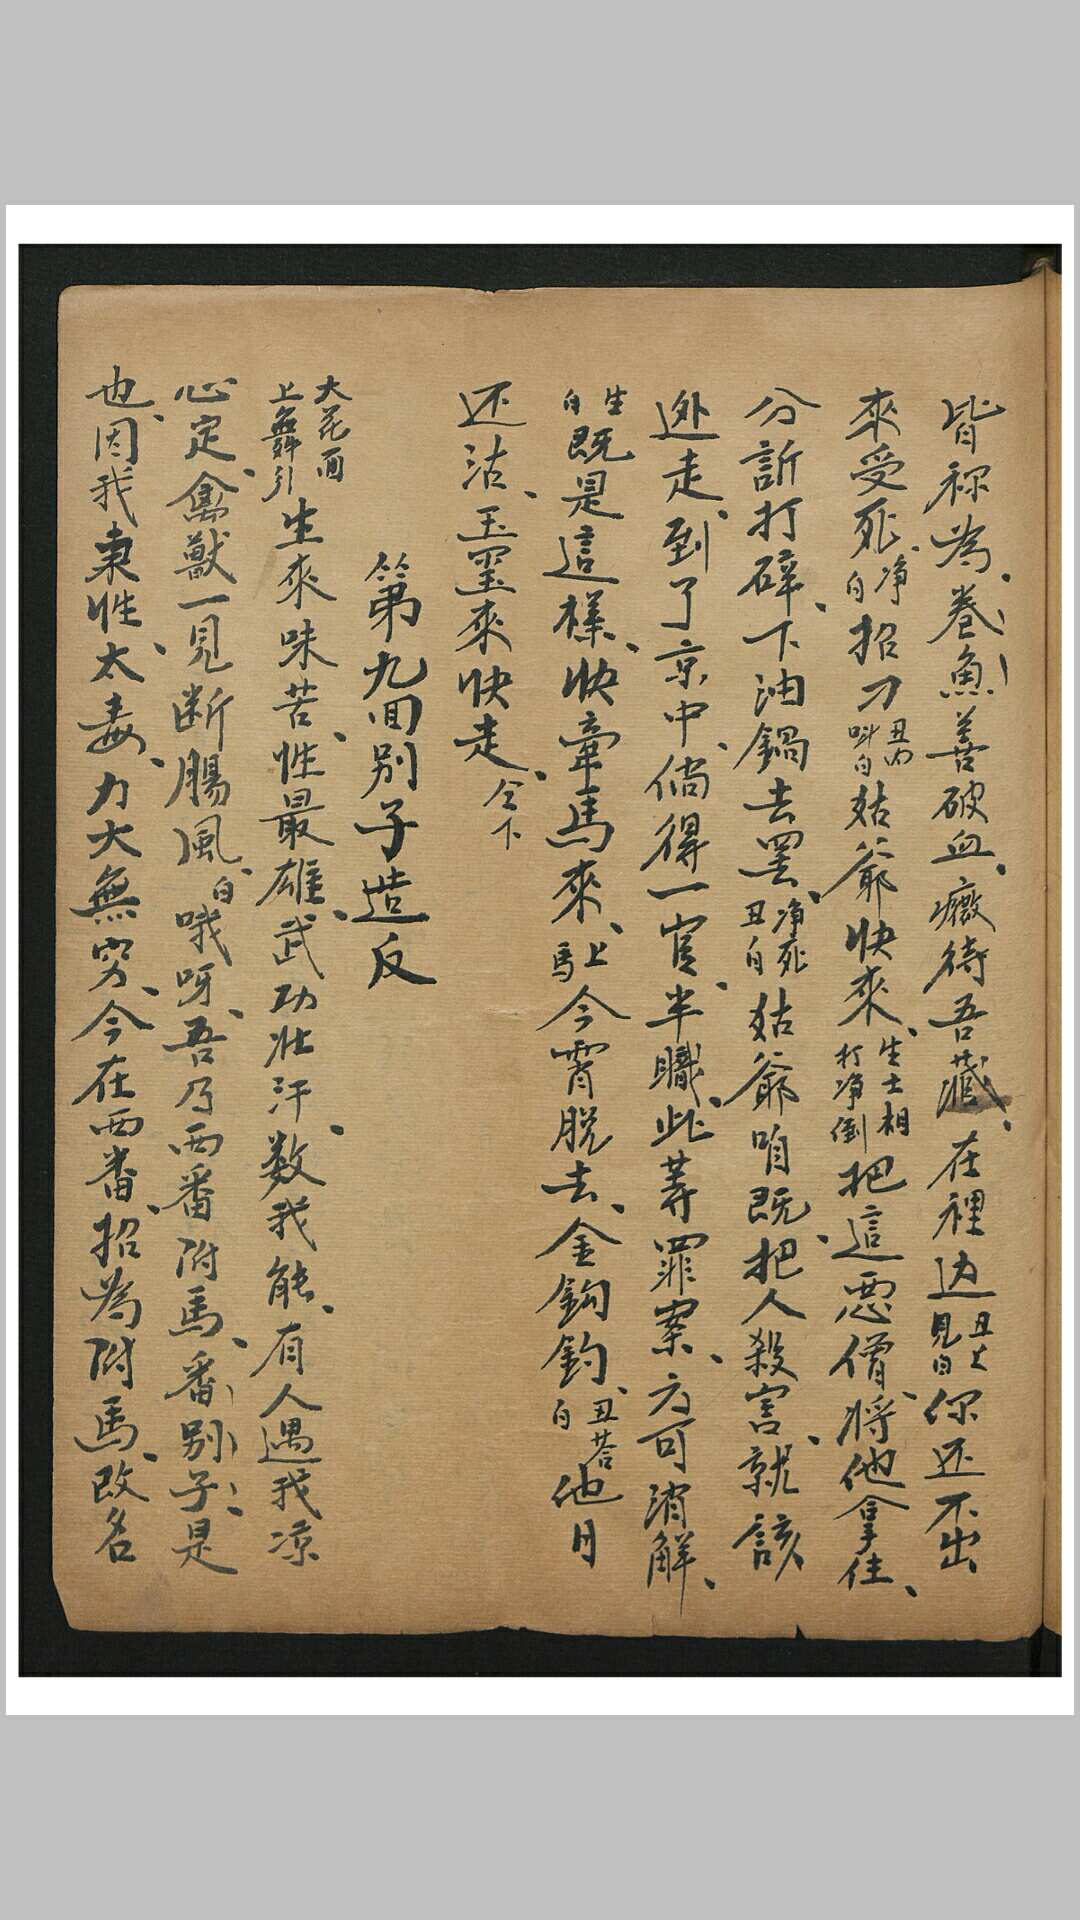 皆称為、卷魚、善破血、癥待吾藏、在裡边丑上見白你还不出
來受死、净白招刀丑内呌白姑爺快來、生士相打净倒把這惡僧、將他拿住、
分訴打碎、下油鍋去罢、净死丑白姑爺咱既把人殺害、就該
逊走、到了京中、倘得一官、半職、此荨罪案、方可消解、
生白既是這樣、快牽馬來、上馬今霄脱去、金鈎釣、丑荅白他日
还沽、玉璽來快走、仝下
第九回别子造反
大花面上舞引生來味苦、性最雄、武功壯汗、数我能、有人遇我凉
心定、禽獸一見断腸風、白哦呀、吾乃西番附馬、番别子、是
也、因我東性、太毒、力大無穷、今在西番、招為附馬、改名